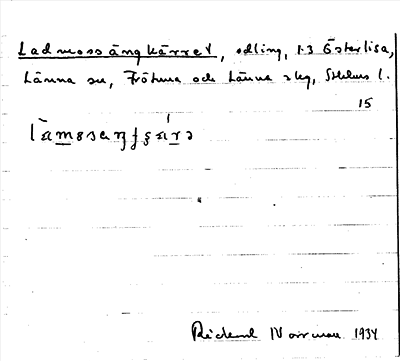 Ladmossängkärret, odling, 1:3 Österlisa,
Länna sn, Frötuna och Länna skg, Sthlms l.
15
Rickard Norrman 1934